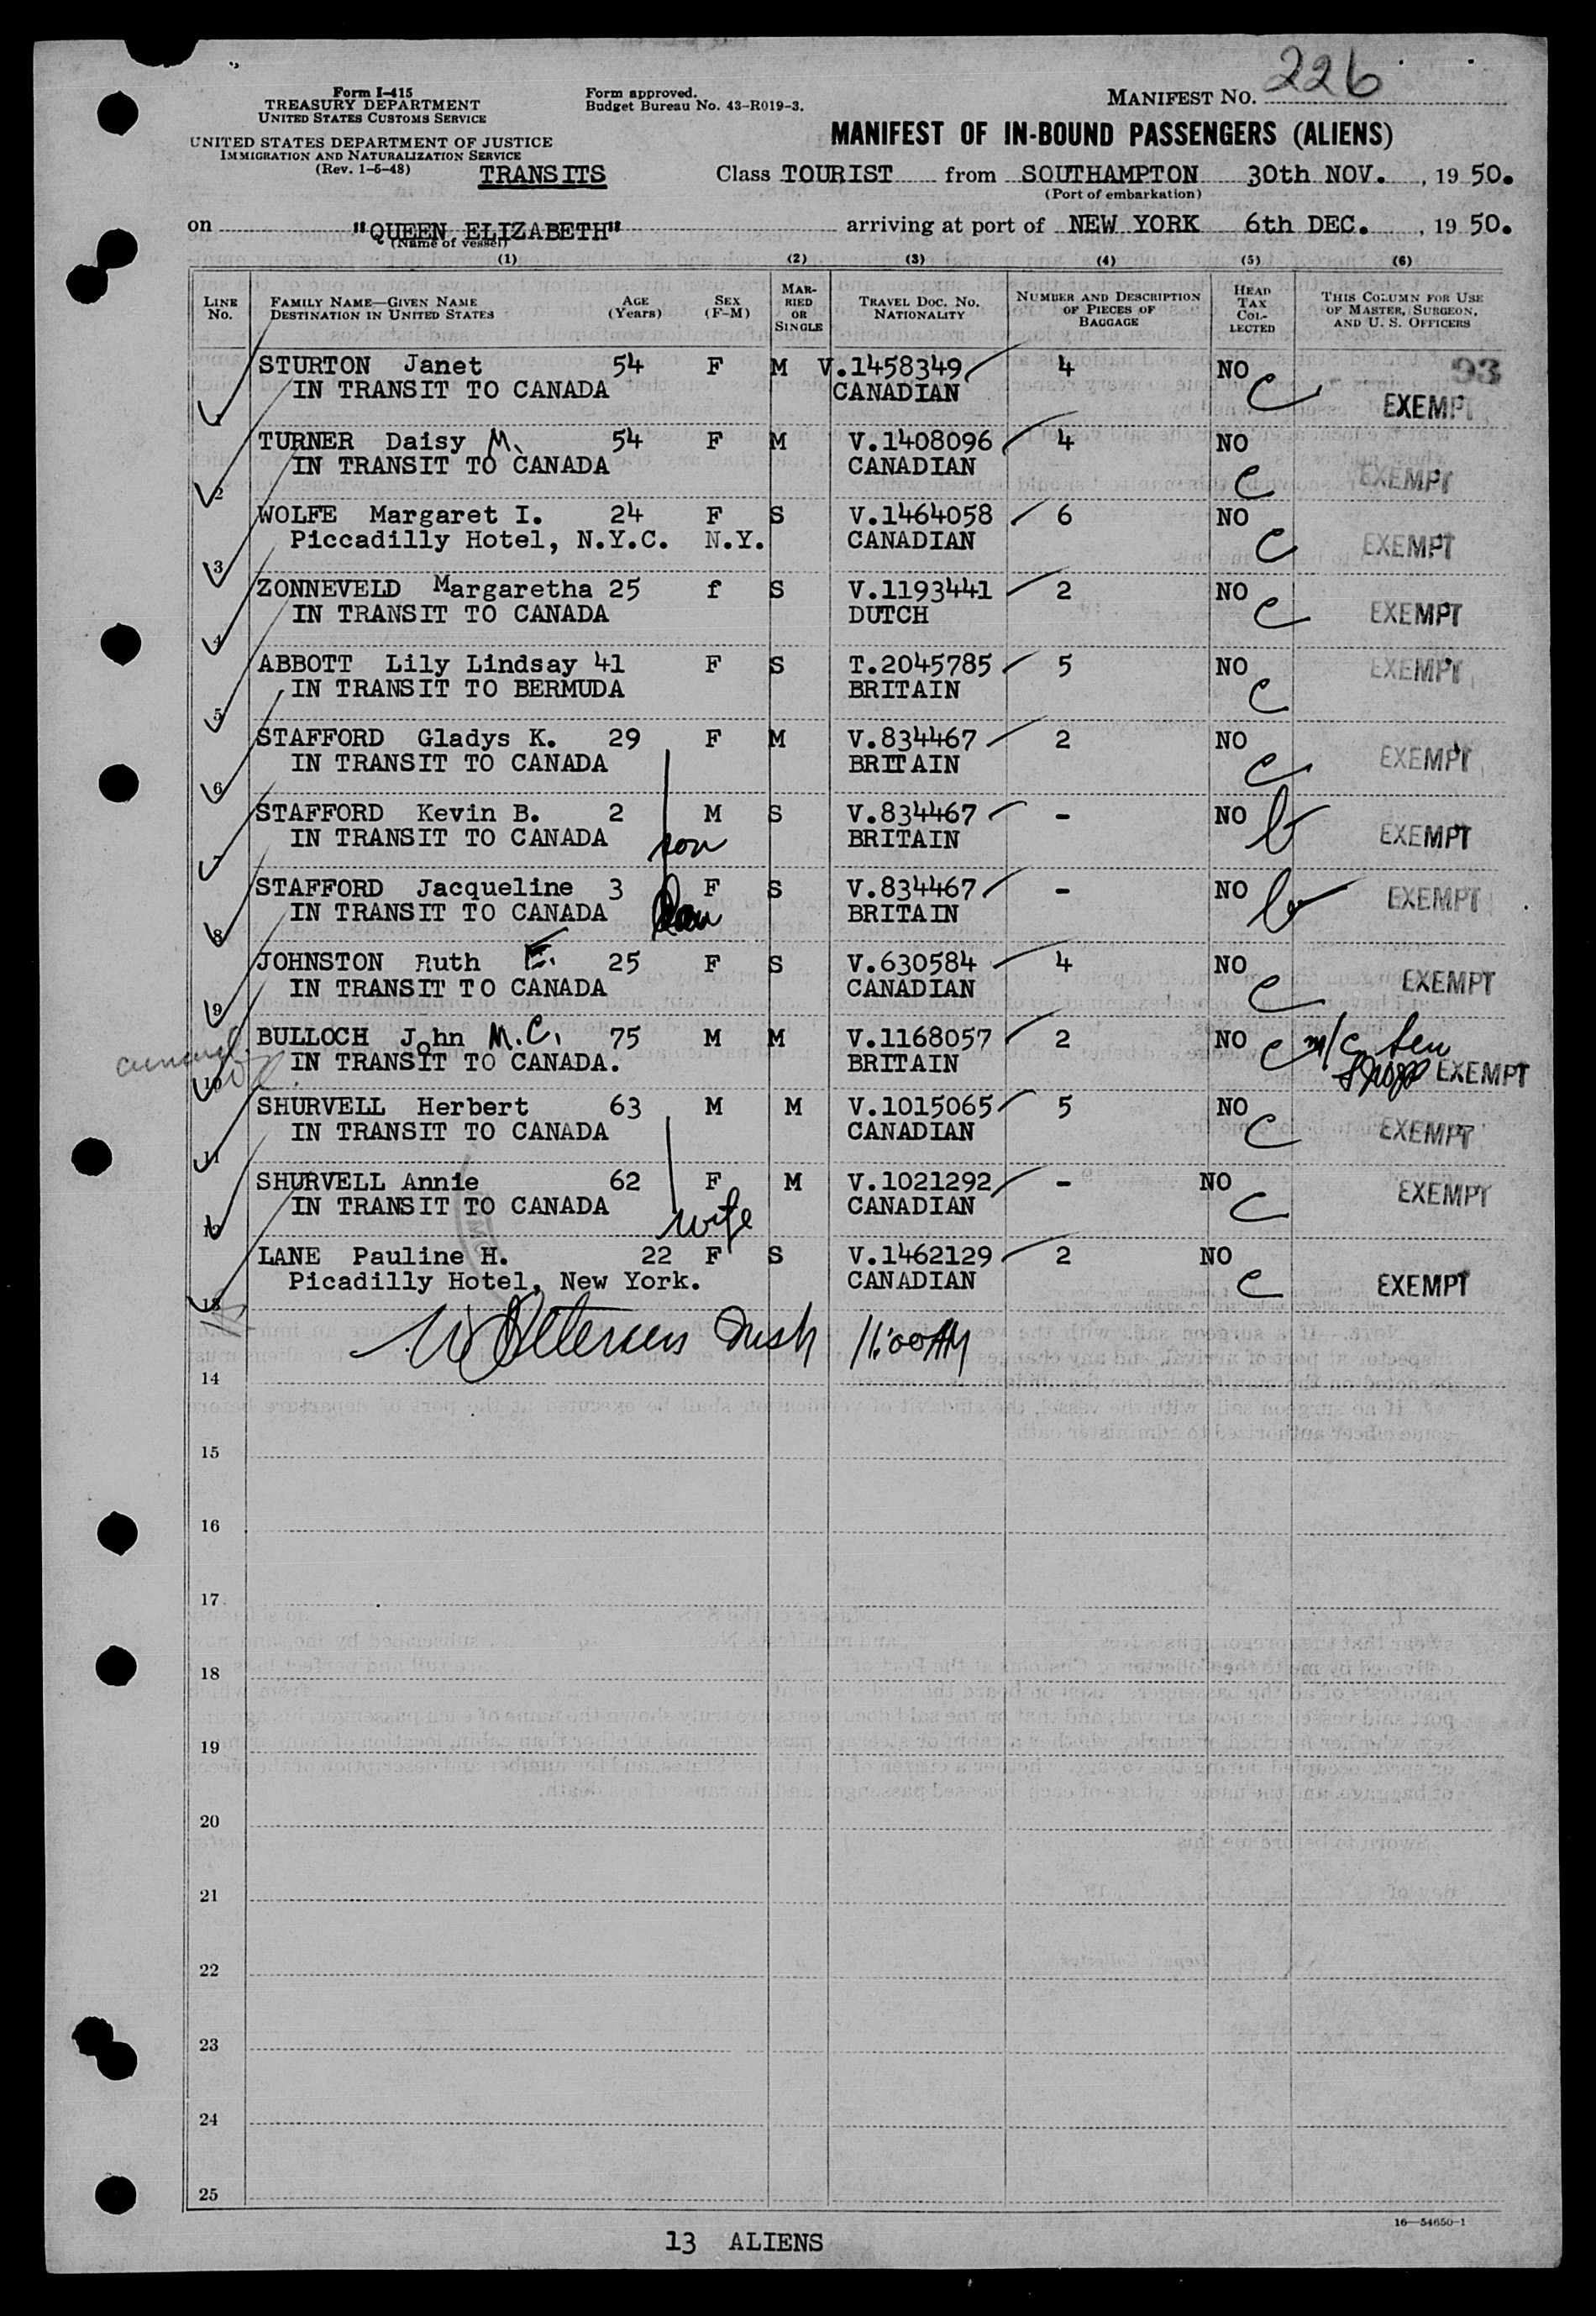 Form I-415
TREASURY DEPARTMENT
UNITED STATES CUSTOMS SERVICE
UNITED STATES DEPARTMENT OF JUSTICE
IMMIGRATION AND NATURALIZATION SERVICE
(Rev. 1-5-48)
TRANSITS
Form approved.
Budget Bureau No. 43-R019-3.
MANIFEST NO. 226
MANIFEST OF IN-BOUND PASSENGERS (ALIENS)
Class TOURIST from SOUTHAMPTON 30th NOV. , 19 50.
(Port of embarkation)
on "QUEEN ELIZABETH" arriving at port of NEW YORK 6th DEC. , 19 50.
(Name of vessel)
(1) (2) (3) (4) (5) (6)
LINE No. FAMILY NAME—GIVEN NAME DESTINATION IN UNITED STATES AGE (Years) SEX (F-M) MARRIED OR SINGLE TRAVEL DOC. NO. NATIONALITY NUMBER AND DESCRIPTION OF PIECES OF BAGGAGE HEAD TAX COLLECTED THIS COLUMN FOR USE OF MASTER, SURGEON, AND U. S. OFFICERS
93
STURTON Janet 54 F M V.1458349 4 NO C
IN TRANSIT TO CANADA CANADIAN EXEMPT
TURNER Daisy M. 54 F M V.1408096 4 NO
2 IN TRANSIT TO CANADA CANADIAN C EXEMPT
WOLFE Margaret I. 24 F S V.1464058 6 NO
3 Piccadilly Hotel, N.Y.C. N.Y. CANADIAN C EXEMPT
ZONNEVELD Margaretha 25 f S V.1193441 2 NO
4 IN TRANSIT TO CANADA DUTCH C EXEMPT
ABBOTT Lily Lindsay 41 F S T.2045785 5 NO EXEMPT
5 IN TRANSIT TO BERMUDA BRITAIN C
STAFFORD Gladys K. 29 F M V.834467 2 NO
6 IN TRANSIT TO CANADA BRITAIN C EXEMPT
STAFFORD Kevin B. 2 M S V.834467 - NO b
7 IN TRANSIT TO CANADA son BRITAIN EXEMPT
STAFFORD Jacqueline 3 F S V.834467 - NO b
8 IN TRANSIT TO CANADA BRITAIN EXEMPT
JOHNSTON Ruth E. 25 F S V.630584 4 NO
9 IN TRANSIT TO CANADA CANADIAN C EXEMPT
BULLOCH John M.C. 75 M M V.1168057 2 NO C m/c
10 IN TRANSIT TO CANADA. BRITAIN EXEMPT
SHURVELL Herbert 63 M M V.1015065 5 NO
11 IN TRANSIT TO CANADA CANADIAN C EXEMPT
SHURVELL Annie 62 F M V.1021292 - NO
12 IN TRANSIT TO CANADA wife CANADIAN C EXEMPT
LANE Pauline H. 22 F S V.1462129 2 NO
13 Picadilly Hotel, New York. CANADIAN C EXEMPT
11:00 AM
14
15
16
17
18
19
20
21
22
23
24
25
16—54650-1
13 ALIENS